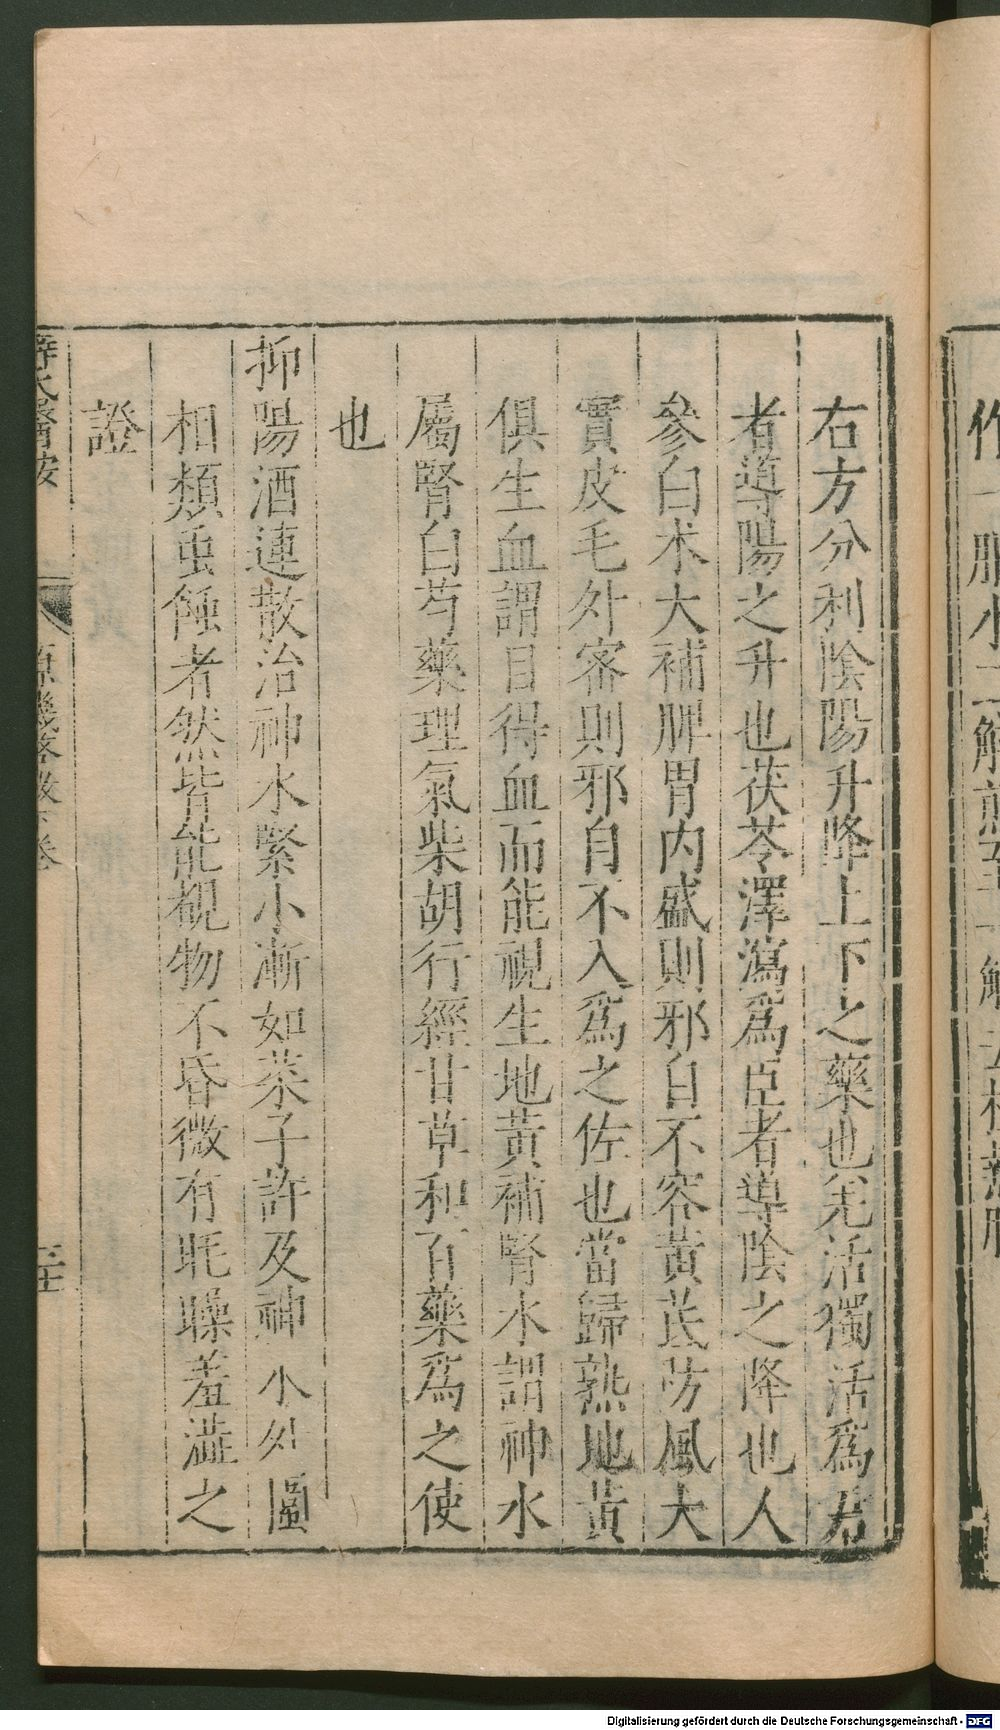 作一服水二
右方分利陰陽升降上下之藥也羌活獨活爲君
者導陽之升也茯苓澤瀉爲臣者導陰之降也人
參白术大補脾胃内盛則邪自不容黃芪防風大
實皮毛外密則邪自不入爲之佐也當歸熟地黃
俱生血謂目得血而能視生地黃補腎水謂神水
屬腎白芍藥理氣柴胡行經甘草和百藥爲之使
也
抑陽酒連散治神水緊小漸如菜子許及神水外圍
相類虫蝕者然皆能覩物不昏微有眊矂羞澁之
證
薛氏醫按
原機啓微下卷
Digitalisierung gefördert durch die Deutsche Forschungsgemeinschaft - DFG